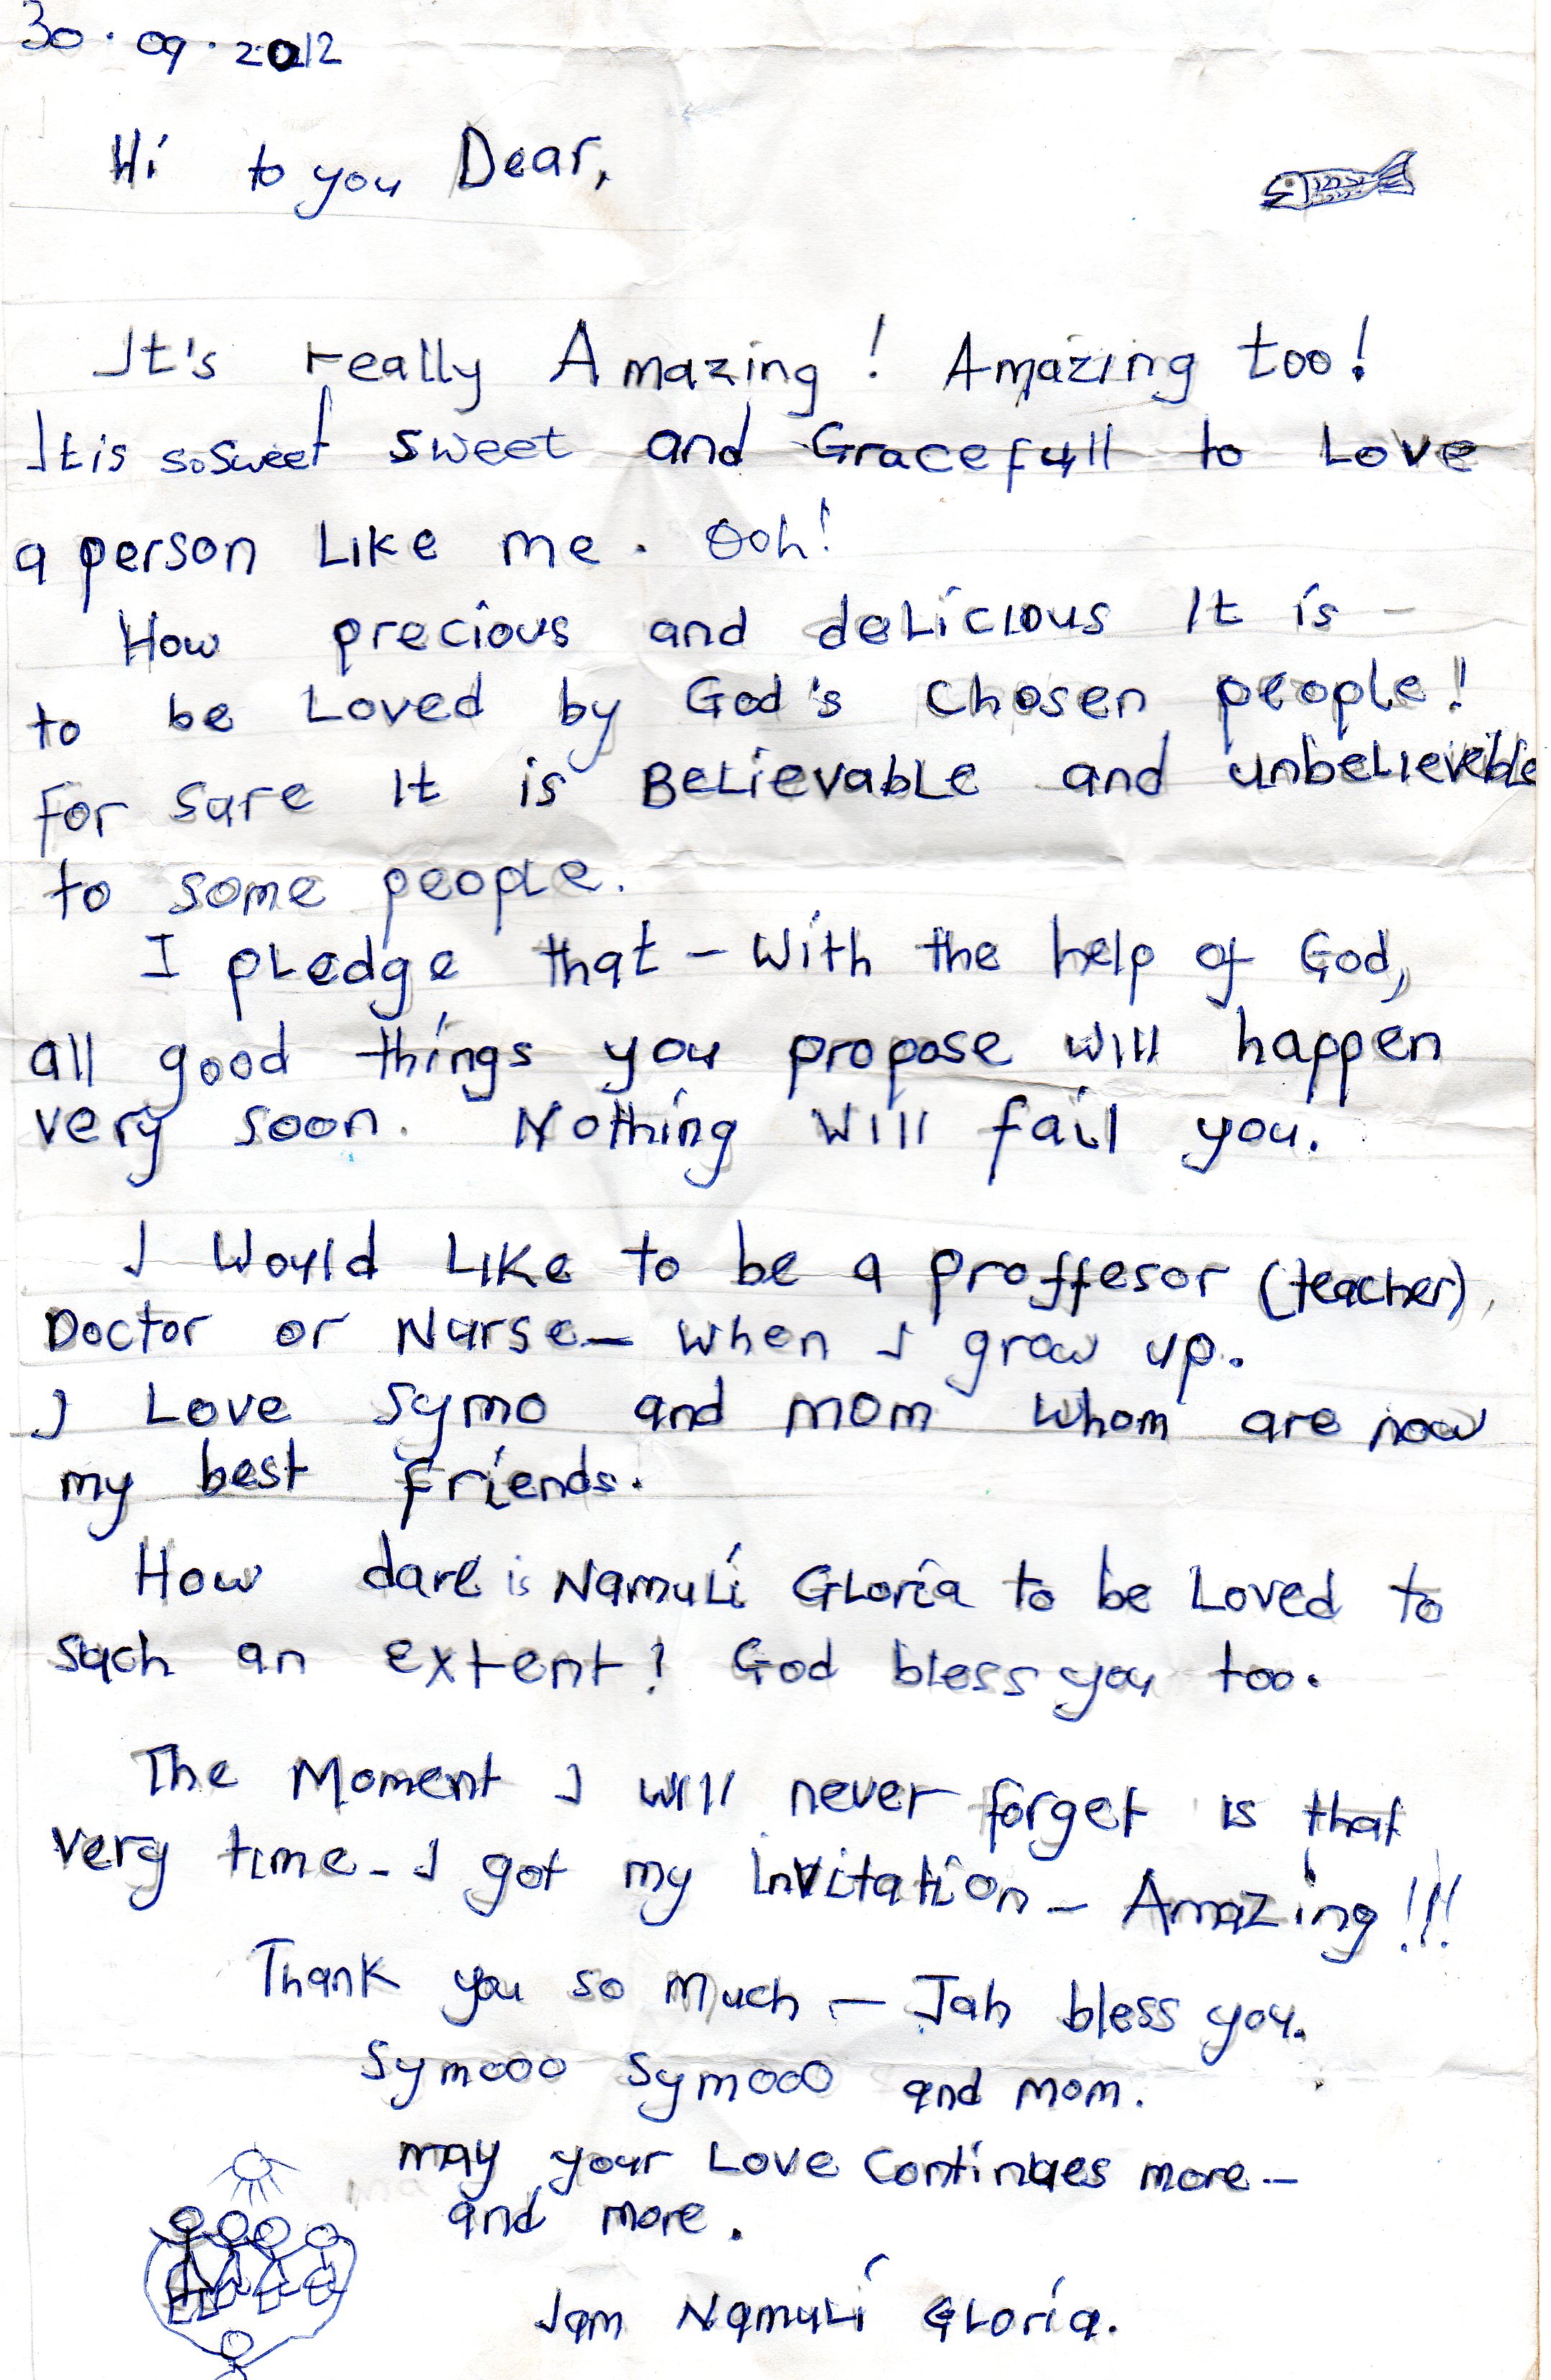 30.09.2012
Hi to you Dear,
It's really Amazing! Amazing too!
It is so sweet sweet and Gracefull to Love
a person Like me. Ooh!
How precious and deLicious It is -
to be Loved by God's chosen people!
For sure It is BeLievabLe and unbeLieveble
to some peopLe.
I pLedge that - With the help of God,
all good things you propose will happen
very soon. Nothing will fail you.
I Would Like to be a proffesor (teacher),
Doctor or Nurse - when I grow up.
I Love Symo and mom whom are now
my best Friends.
How dare is NamuLi GLoria to be Loved to
such an extent? God bless you too.
The Moment I will never forget is that
very time - I got my invitation - Amazing!!!
Thank you so Much - Jah bless you.
Symooo Symooo and mom.
may your Love continues more -
and more.
Iam NamuLi GLoria.